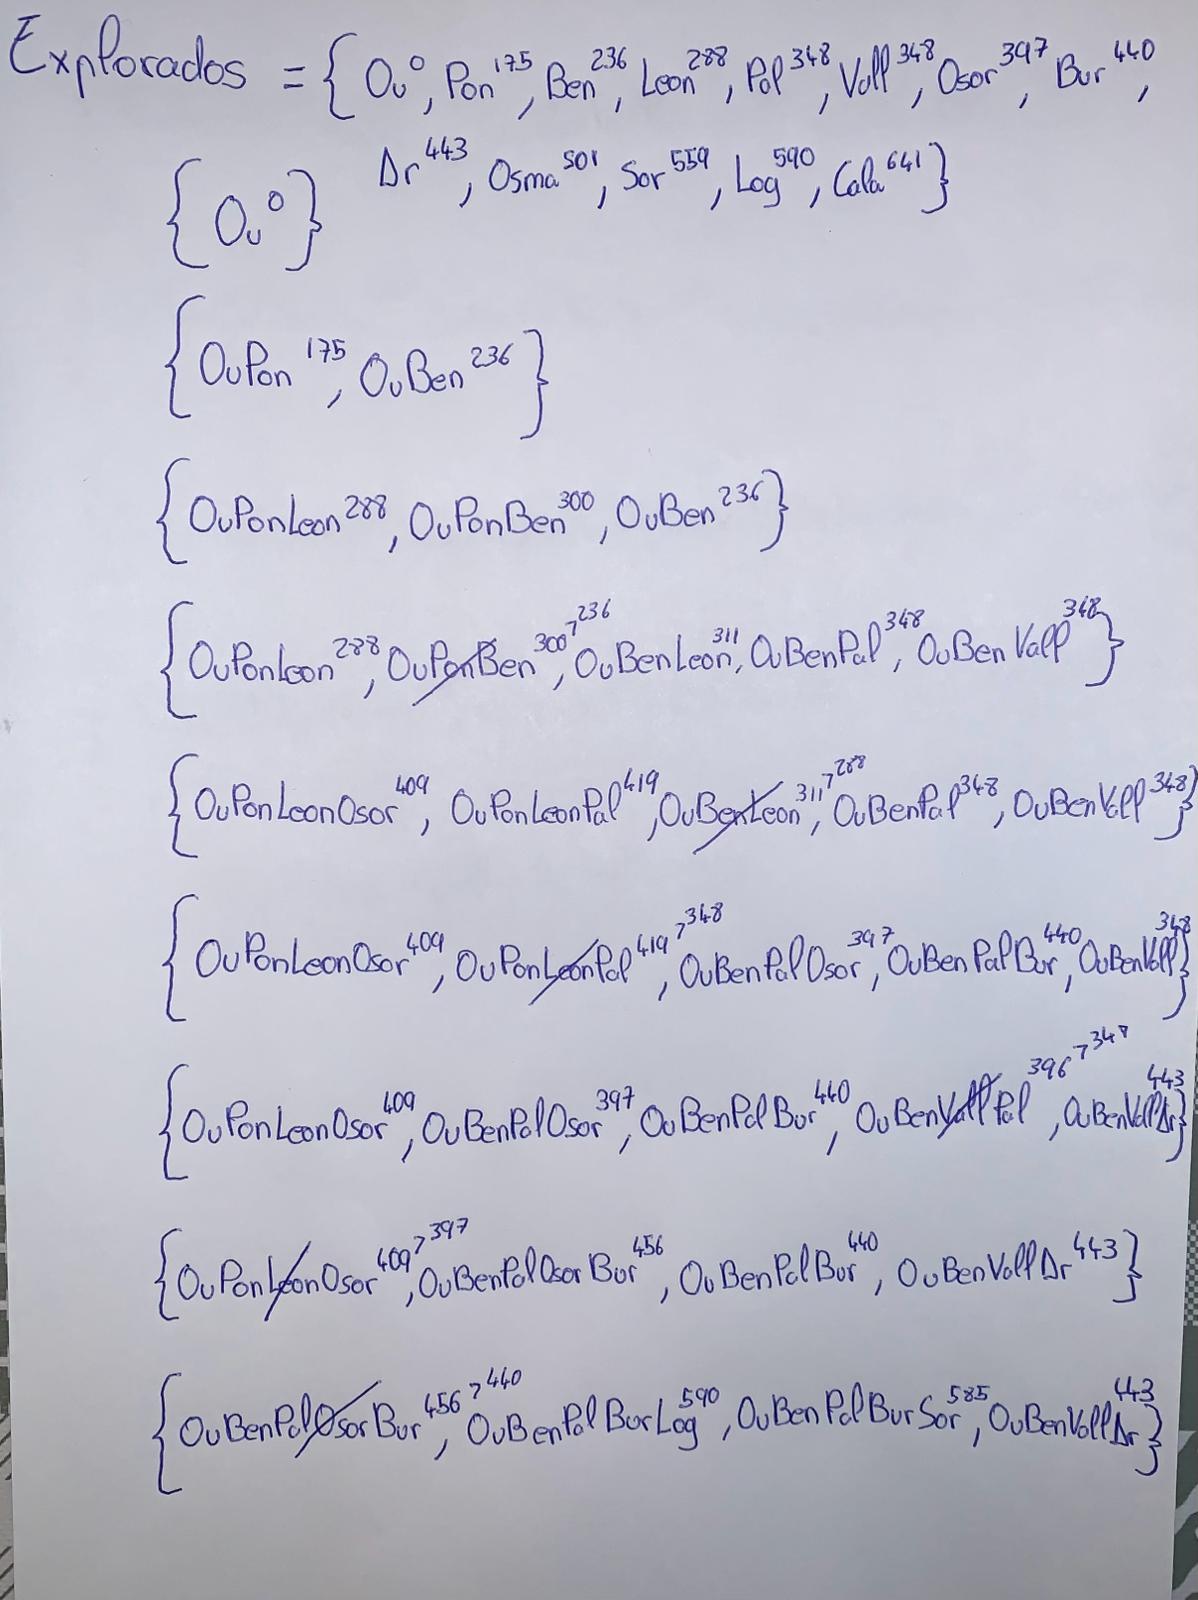 Explorados = { Ou⁰, Pon¹⁷⁵, Ben²³⁶, Leon²⁸⁸, Pal³⁴⁸, Vall³⁴⁸, Osor³⁹⁷, Bur⁴⁴⁰,
Ar⁴⁴³, Osma⁵⁰¹, Sor⁵⁵⁹, Log⁵⁹⁰, Cala⁶⁴¹ }
{ Ou⁰ }
{ OuPon¹⁷⁵, OuBen²³⁶ }
{ OuPonLeon²⁸⁸, OuPonBen³⁰⁰, OuBen²³⁶ }
{ OuPonLeon²⁸⁸, OuPonBen³⁰⁰ > ²³⁶, OuBenLeon³¹¹, OuBenPal³⁴⁸, OuBenVall³⁴⁸ }
{ OuPonLeonOsor⁴⁰⁹, OuPonLeonPal⁴¹⁹, OuBenLeon³¹¹ > ²⁸⁸, OuBenPal³⁴⁸, OuBenVall³⁴⁸ }
{ OuPonLeonOsor⁴⁰⁹, OuPonLeonPal⁴¹⁹ > ³⁴⁸, OuBenPalOsor³⁹⁷, OuBenPalBur⁴⁴⁰, OuBenVall³⁴⁸ }
{ OuPonLeonOsor⁴⁰⁹, OuBenPalOsor³⁹⁷, OuBenPalBur⁴⁴⁰, OuBenVallPal³⁹⁶ > ³⁴⁸, OuBenVallAr⁴⁴³ }
{ OuPonLeonOsor⁴⁰⁹ > ³⁹⁷, OuBenPalOsorBur⁴⁵⁶, OuBenPalBur⁴⁴⁰, OuBenVallAr⁴⁴³ }
{ OuBenPalOsorBur⁴⁵⁶ > ⁴⁴⁰, OuBenPalBurLog⁵⁹⁰, OuBenPalBurSor⁵⁸⁵, OuBenVallAr⁴⁴³ }